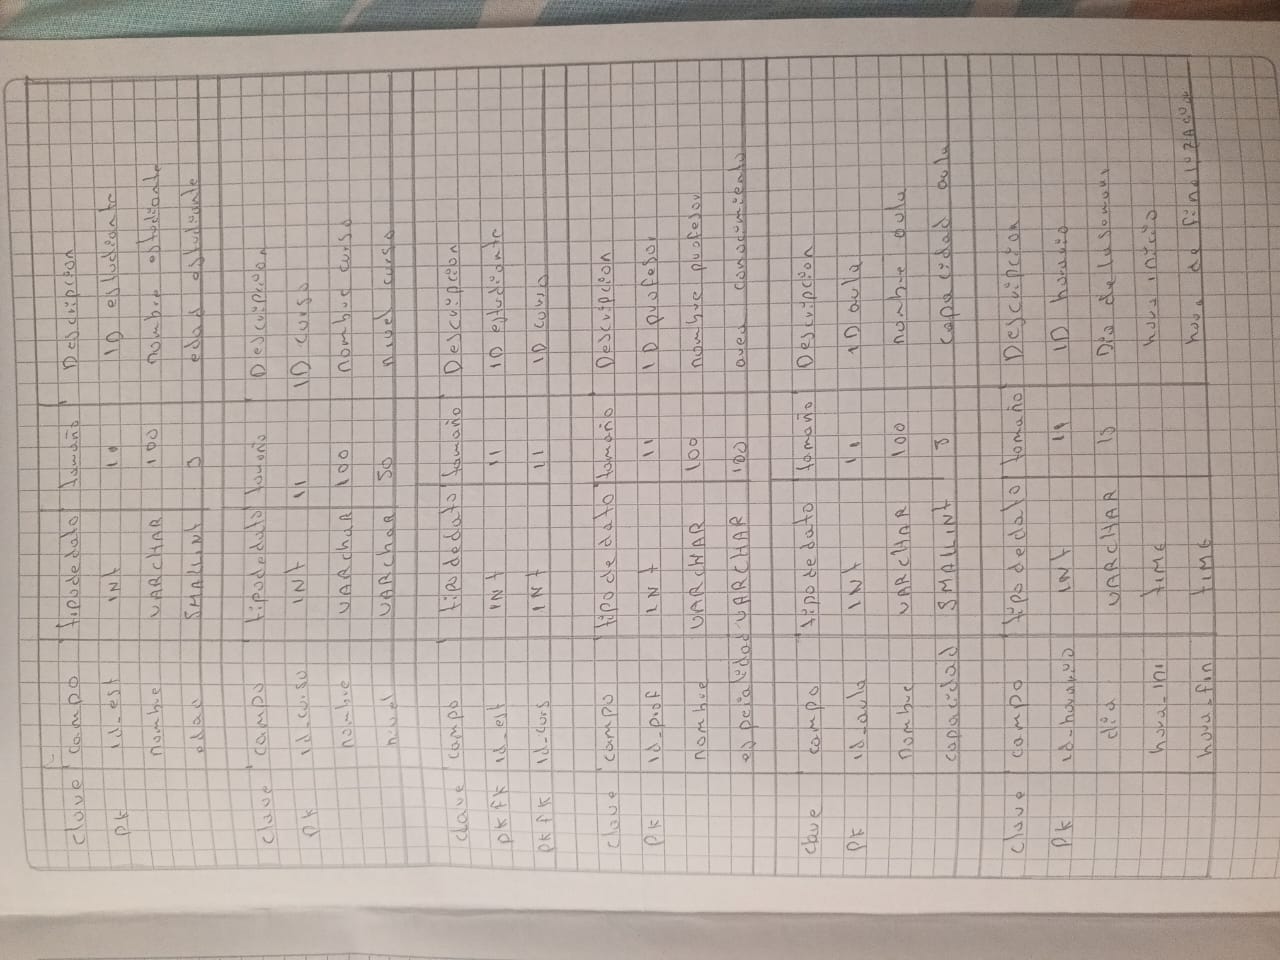 clave campo tipo de dato tamaño Descripcion
pk id_est INt 11 ID estudiante
nombre VARCHAR 100 nombre estudiante
edad SMALLINt 3 edad estudiante
clave campo tipo de dato tamaño Descripcion
pk id_curso INt 11 ID curso
nombre VARchaR 100 nombre curso
nivel VARchar 50 nivel curso
clave campo tipo de dato tamaño Descripcion
pk fk id_est INt 11 ID estudiante
pk fk id_curs INt 11 ID curso
clave campo tipo de dato tamaño Descripcion
pk id_prof INt 11 ID profesor
nombre VARCHAR 100 nombre profesor
especialidad VARCHAR 100 area conocimiento
clave campo tipo de dato tamaño Descripcion
pk id_aula INt 11 ID aula
nombre VARCHAR 100 nombre aula
capacidad SMALLINt 3 capacidad aula
clave campo tipo de dato tamaño Descripcion
pk id_horario INt 11 ID horario
dia VARCHAR 15 Dia de la semana
hora_ini tIME hora inicio
hora_fin tIME hora de finalización